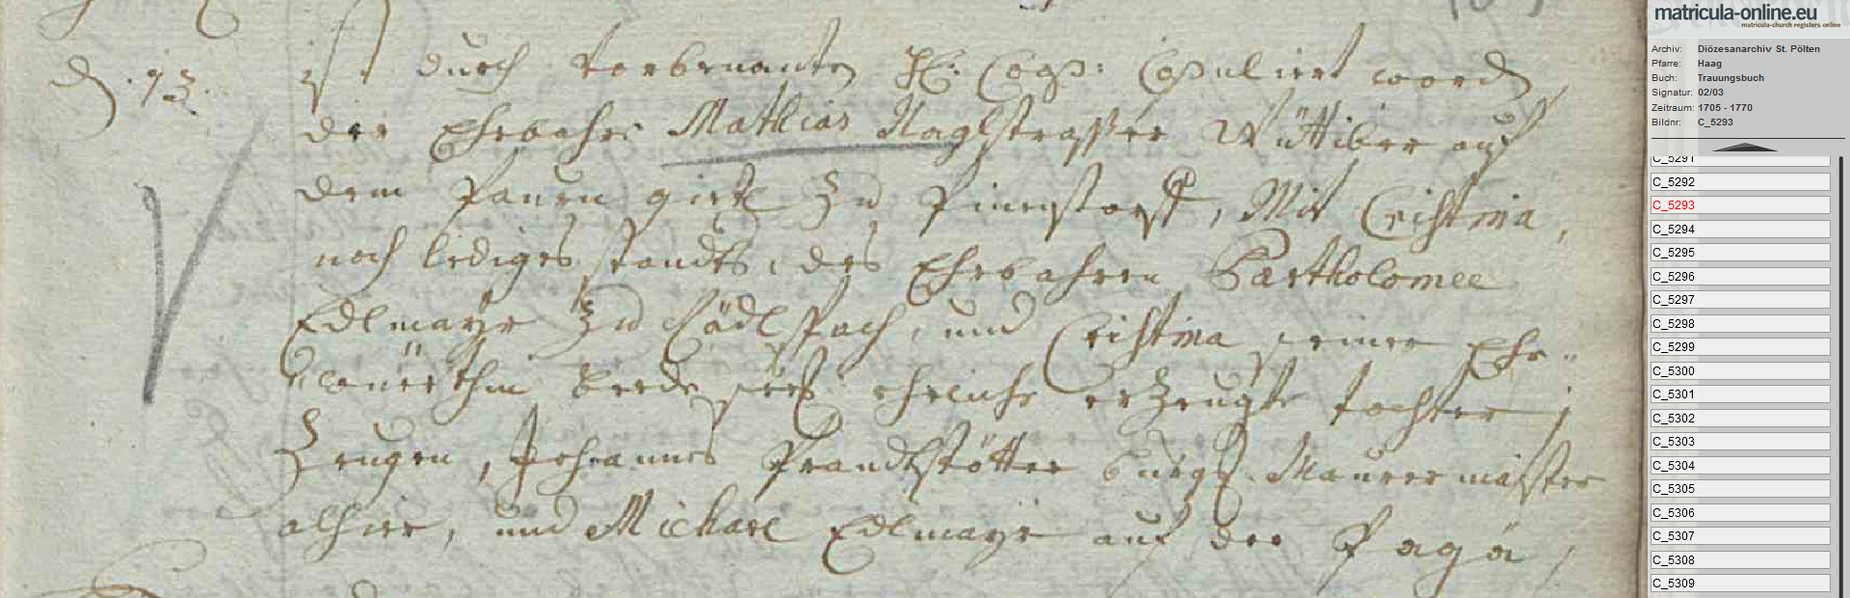 d. 13. ist durch vorbenanten H: Cog: Copuliert word
der Ehrbahre Mathias Naglstrasser Wüttiber auf
dem Paurn guett zu Pinnstorff, Mit Cristina,
noch lediges standts, des Ehrbahren Bartholomee
Edlmayr zu, und Cristina seiner Ehe-
beede seel: eheliche erzeugte tochter;
Zeugen, Johannes Prandtstötter burgl. Maurermaister
alhier, und Michael Edlmayr auf der
matricula-online.eu
matricula-church registers online
Archiv: Diözesanarchiv St. Pölten
Pfarre: Haag
Buch: Trauungsbuch
Signatur: 02/03
Zeitraum: 1705 - 1770
Bildnr: C_5293
C_5291
C_5292
C_5293
C_5294
C_5295
C_5296
C_5299
C_5298
C_5299
C_5300
C_5301
C_5302
C_5303
C_5304
C_5305
C_5306
C_5307
C_5308
C_5309